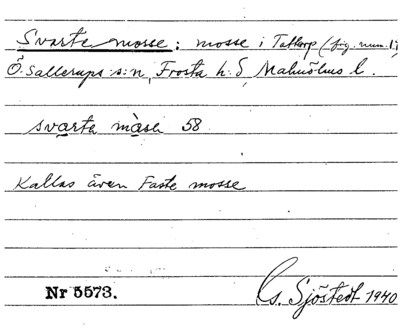 Svarte mosse: mosse i Tattarp (fig. num. 1:)
Ö. Sallerups s:n, Frosta h:d, Malmöhus l.
svarta måsa 58
Kallas även Faste mosse
Nr 5573.
Gs. Sjöstedt 1940